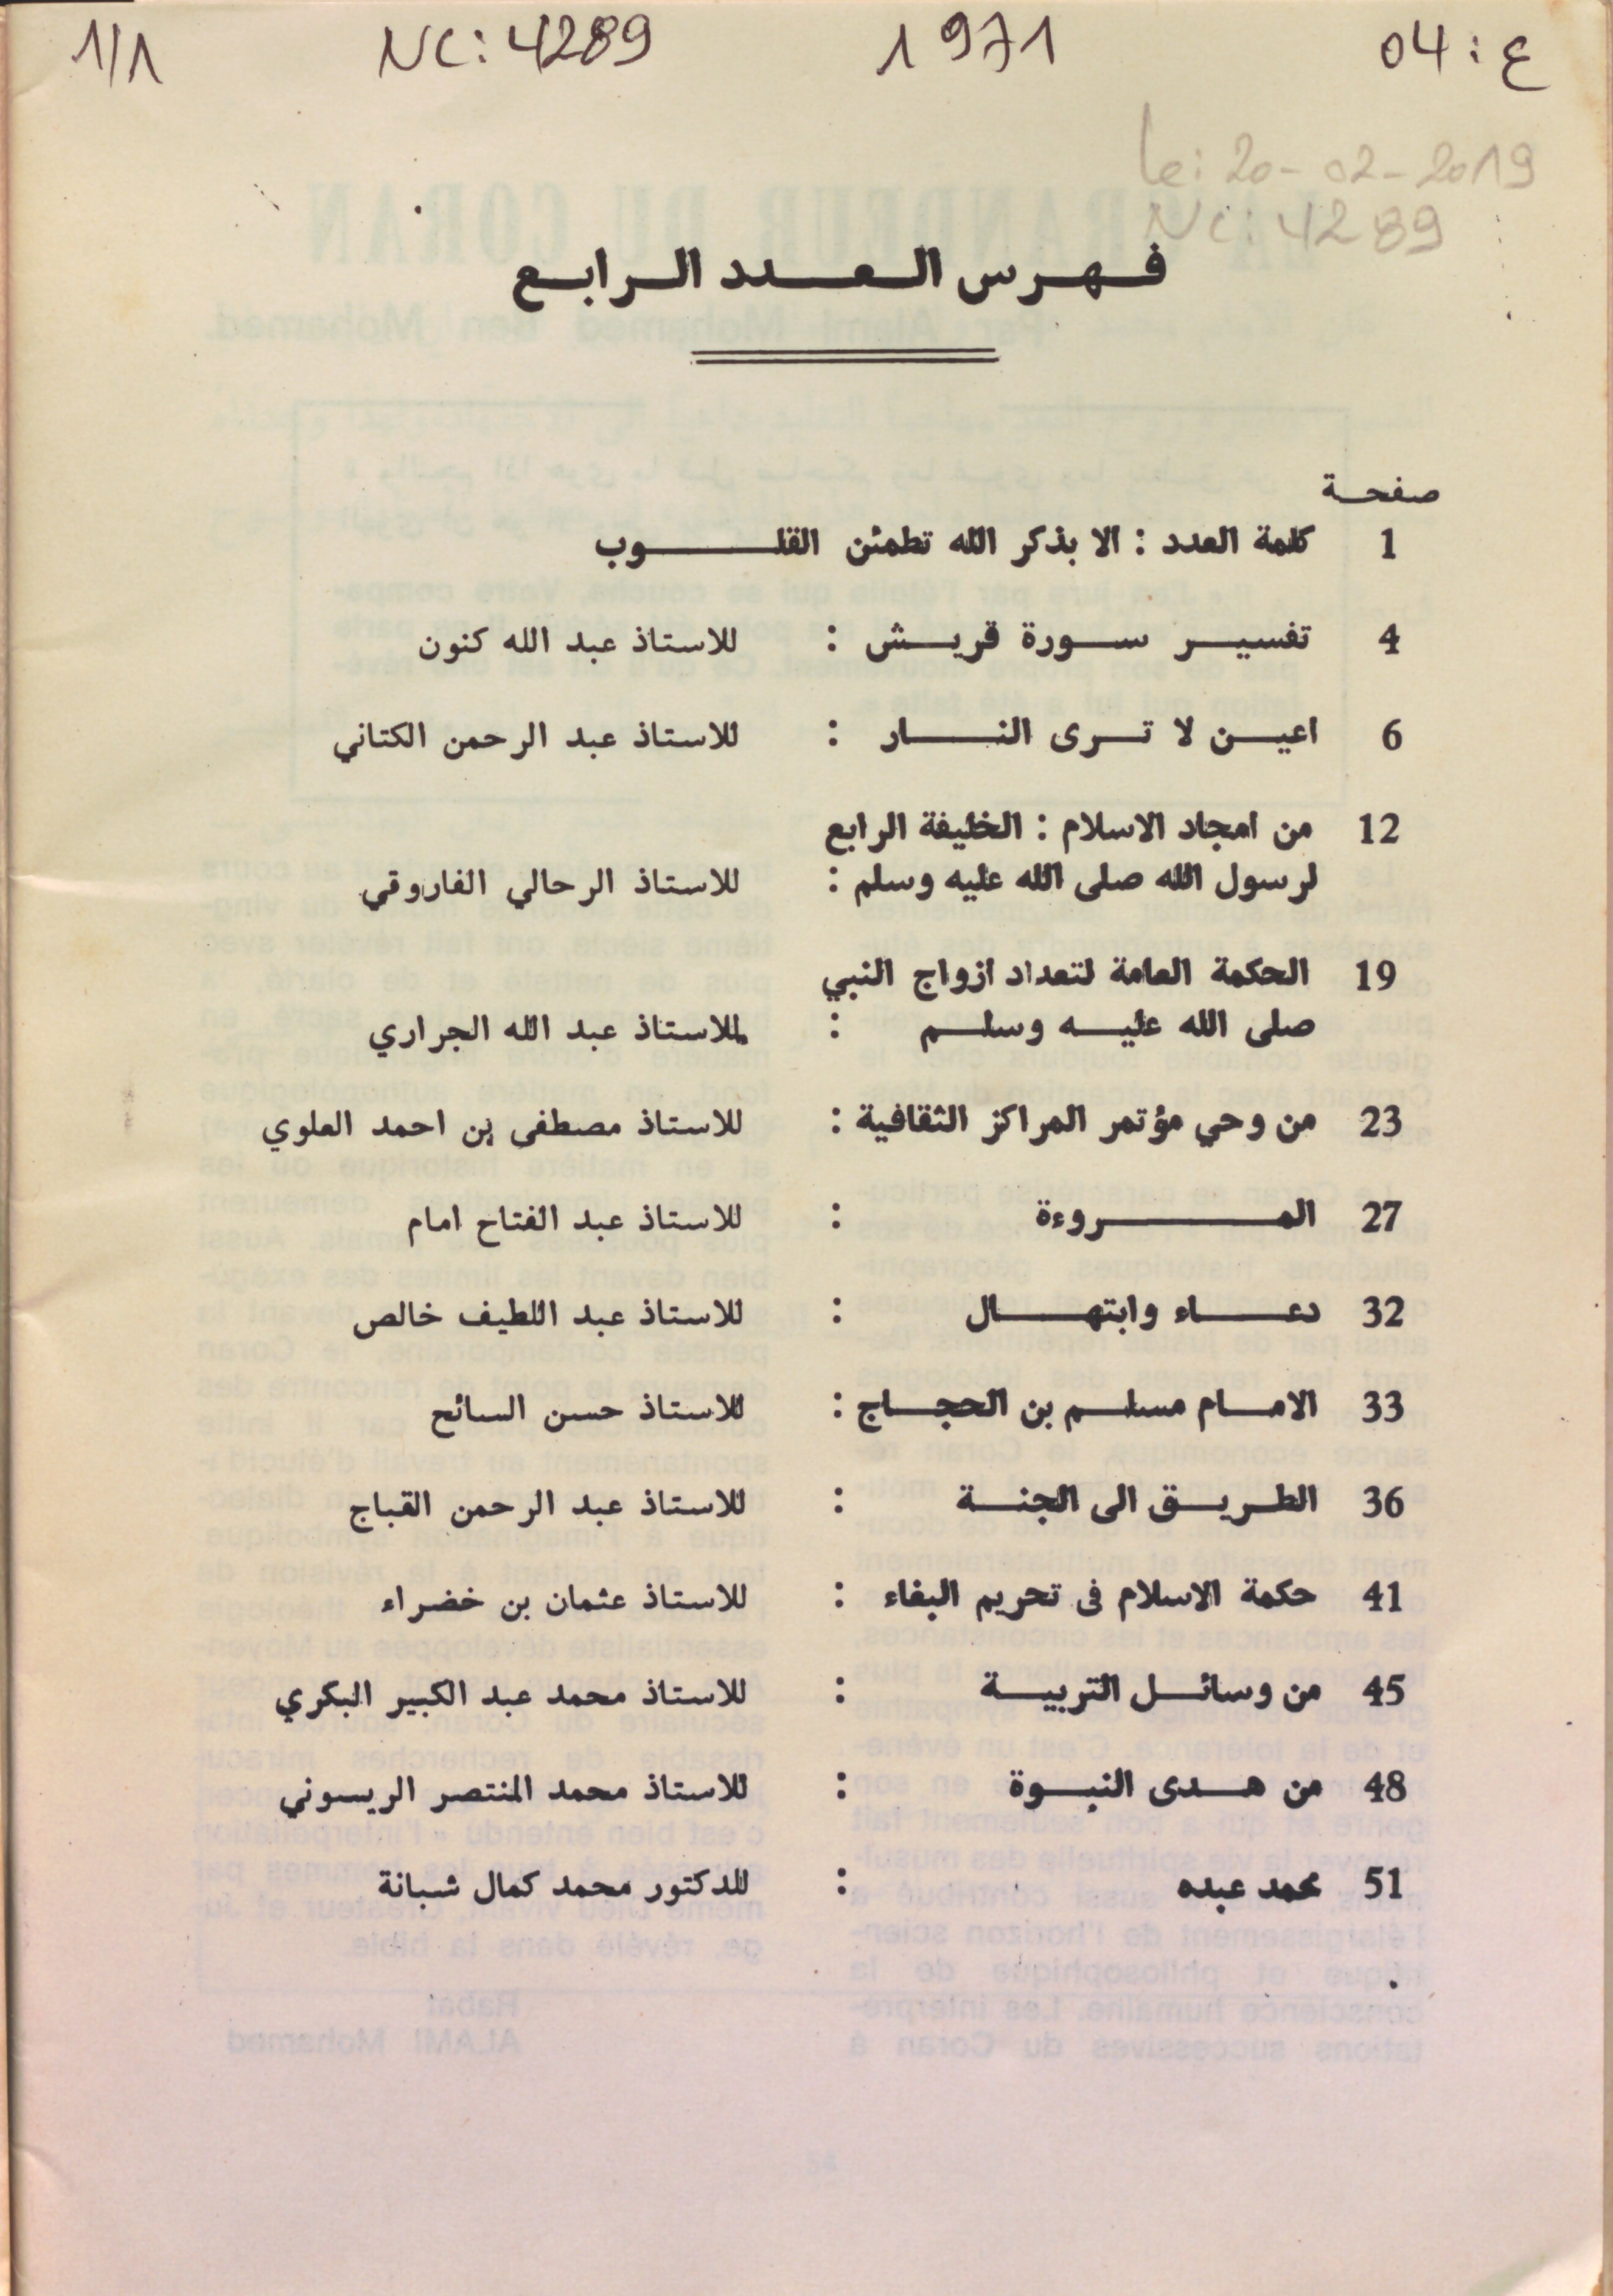 1/1 NC: 4289 1971 04 : ع
Le: 20-02-2019
NC: 4289
فهرس العدد الرابع
صفحة
1 كلمة العدد : الا بذكر الله تطمئن القلوب
4 تفسير سورة قريش : للاستاذ عبد الله كنون
6 اعين لا ترى النار : للاستاذ عبد الرحمن الكتاني
12 من امجاد الاسلام : الخليفة الرابع
لرسول الله صلى الله عليه وسلم : للاستاذ الرحالي الفاروقي
19 الحكمة العامة لتعداد ازواج النبي
صلى الله عليه وسلم : للاستاذ عبد الله الجراري
23 من وحي مؤتمر المراكز الثقافية : للاستاذ مصطفى بن احمد العلوي
27 المروءة : للاستاذ عبد الفتاح امام
32 دعاء وابتهال : للاستاذ عبد اللطيف خالص
33 الامام مسلم بن الحجاج : للاستاذ حسن السائح
36 الطريق الى الجنة : للاستاذ عبد الرحمن القباج
41 حكمة الاسلام فى تحريم البغاء : للاستاذ عثمان بن خضراء
45 من وسائل التربية : للاستاذ محمد عبد الكبير البكري
48 من هدى النبوة : للاستاذ محمد المنتصر الريسوني
51 محمد عبده : للدكتور محمد كمال شبانة